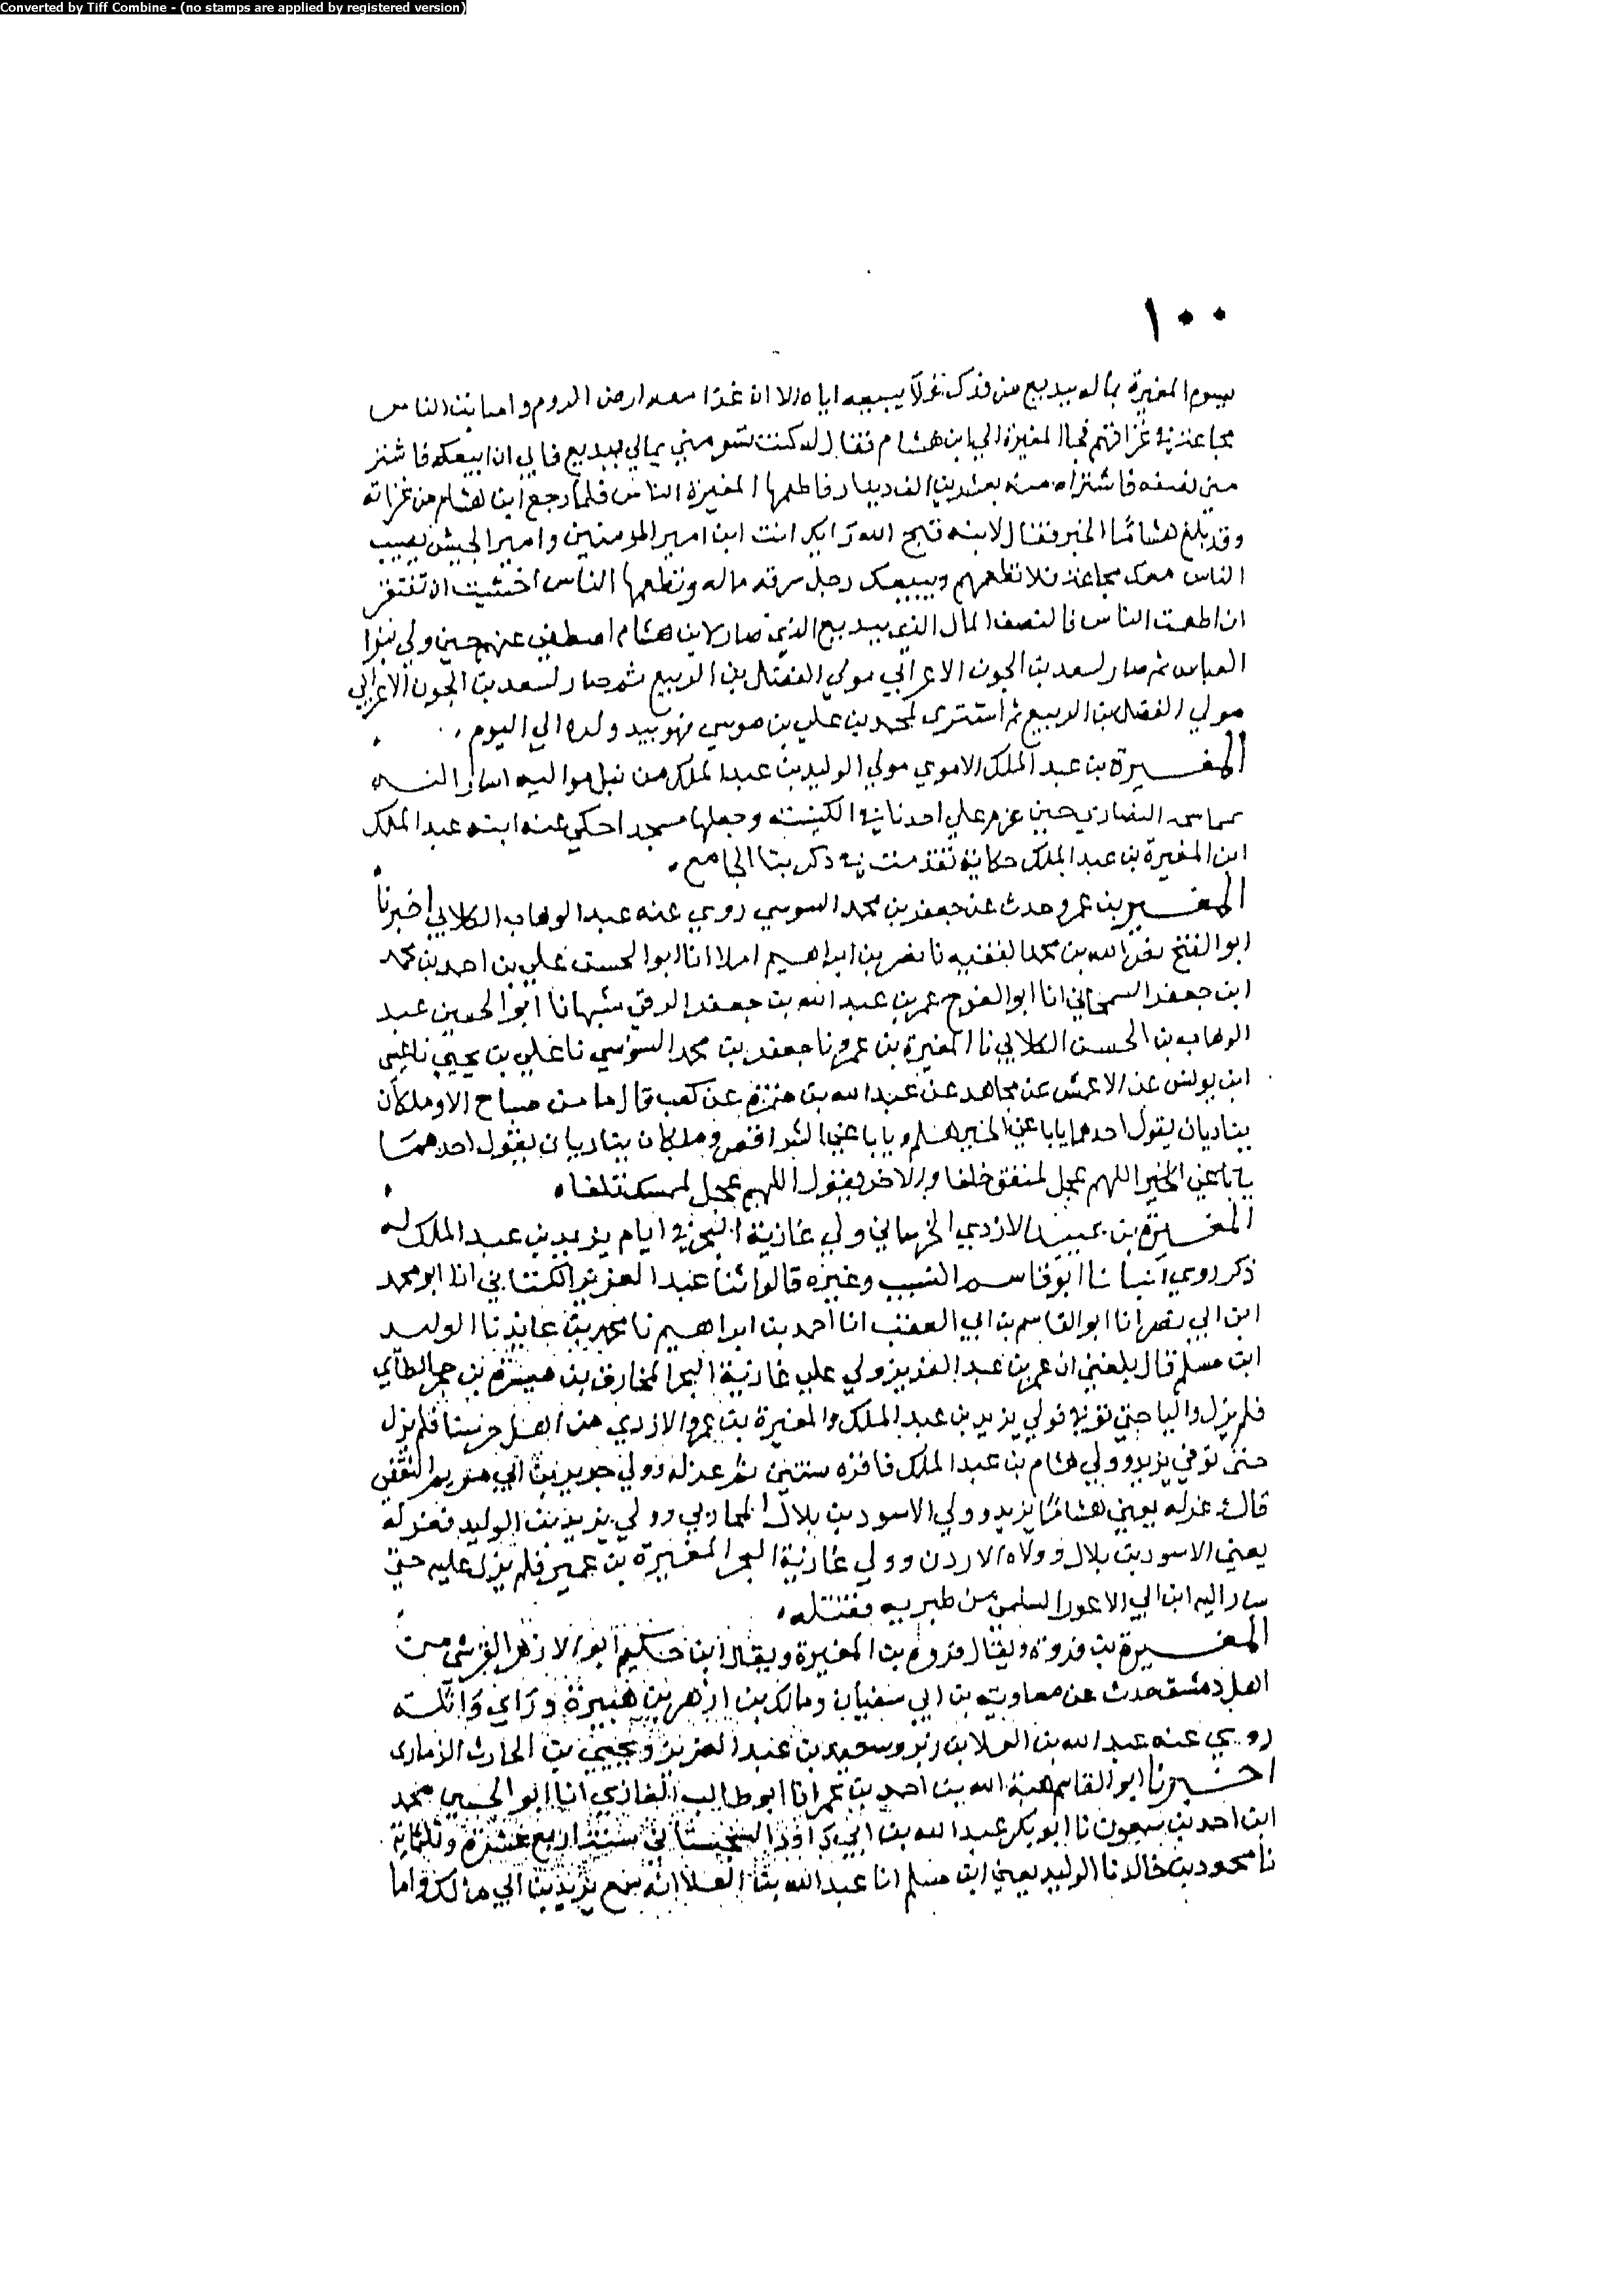 Converted by Tiff Combine - (no stamps are applied by registered version)
١٠٠
يسوم المغيرة بماله ببديع من فدك فلا يبيعه اياه الا ان غزا معه ارض الروم واصابت الناس
مجاعة في غزاتهم فجا المغيرة الي ابن هشام فقال له كنت تسومني بمالي ببديع فابي ان ابيعكه فاشتر
مني نصفه فاشتراه منه بعشرين الف دينار فاطعمها المغيرة الناس فلما رجع ابن هشام من غزاته
وقد بلغ هشاما الخبر فقال لابنه قبح الله رايك انت ابن امير المومنين وامير الجيش تصيب
الناس معك مجاعة فلا تطعمهم ويبيعك رجل سرقه ماله وتطعمها الناس اخشيت ان تفتقر
ان اطعمت الناس فالنصف المال الذي ببديع الذي صار لابن هشام اصطفي عنهم حين ولي بنوا
العباس ثم صار لسعد بن الجون الاعرابي مولي الفضل بن الربيع ثم صار لسعد بن الجون الاعرابي
مولي الفضل بن الربيع ثم اشترى لمحمد بن علي بن موسي فهو بيد ولده الي اليوم
المغيرة بن عبد الملك الاموي مولي الوليد بن عبد الملك من قبل مواليه
النصاري حين عزم علي احد الكنيسة وجعلها مسجد احكي عنه ابنه عبد الملك
ابن المغيرة بن عبد الملك حكاية تقدمت في ذكر بنا الجامع
المغيرة بن عمرو حدث عن جعفر بن محمد السوسي روي عنه عبد الوهاب الكلابي اخبرنا
ابو الفتح نصر الله بن محمد الفقيه نا نصر بن ابراهيم املا انا ابو الحسن علي بن احمد بن محمد
ابن جعفر انا ابو الفرج عمر بن عبد الله بن جعفر الرقي بها انا ابو الحسين عبد
الوهاب بن الحسن الكلابي نا المغيرة بن عمرو نا جعفر بن محمد السوسي نا علي بن يحيي نا عيسى
ابن يونس عن الاعمش عن مجاهد عن عبد الله بن ضمرة عن كعب قال ما من صباح الا وملكان
يناديان يقول احدهما ياباغي الخير هلم وياباغي الشر اقصر وملكان يناديان يقول احدهما
ياباغي الخير اللهم عجل لمنفق خلفا والاخر يقول اللهم عجل لممسك تلفا
المغيرة بن الازدي ولي غازية البحر في ايام يزيد بن عبد الملك له
ذكر روي انبانا ابو قاسم النسيب وغيره قالوا ثنا عبد العزيز الكتاني انا ابو محمد
ابن ابي نصر انا ابو القاسم بن ابي العقب انا احمد بن ابراهيم نا محمد بن عايذ نا الوليد
ابن مسلم قال بلغني ان عمر بن عبد العزيز ولي علي غازية البحر المخارق بن ميسرة بن حجر الطائي
فلم يزل واليا حتي توفي فولي يزيد بن عبد الملك والمغيرة بن عمرو الازدي من اهل حرستا فلم يزل
حتى توفي يزيد وولي هشام بن عبد الملك فاقره سنتين ثم عزله وولي ابن ابي مريم الثقفي
قال وعزله يعني هشاما يزيد وولي الاسود بن بلال المحاربي وولي يزيد بن الوليد فعزله
يعني الاسود بن بلال وولاه الاردن وولي غازية البحر المغيرة بن عمير فلم يزل عليه حتي
سار اليه ابن ابي الاعور السلمي من طبريه فقتله
المغيرة بن فروة ويقال فروة بن المغيرة ويقال ابن حكيم ابو الازهر القرشي من
اهل دمشق حدث عن معاويه بن ابي سفيان ومالك بن هبيرة وراي واثلة
روي عنه عبد الله بن العلا بن زبر وسعيد بن عبد العزيز ويحيي بن الحارث الذماري
اخبرنا ابو القاسم هبة الله بن احمد بن عمر انا ابو طالب انا ابو الحسين محمد
ابن احمد بن سمعون نا ابو بكر عبد الله بن ابي داود السجستاني سنة اربع عشرة وثلثماية
نا محمود بن خالد نا الوليد يعني ابن مسلم انا عبد الله بن العلا انه سمع يزيد بن ابي مالك وابا